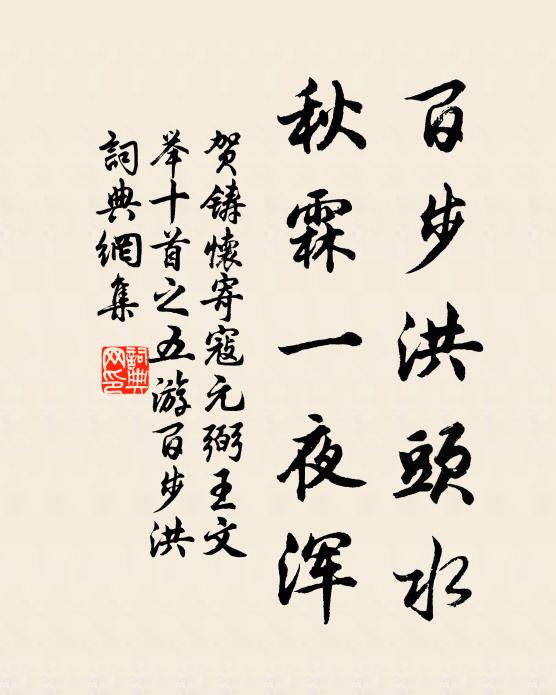 百步洪頭水
秋霖一夜浑
贺鑄懷寄寇元弼王文
举十首之五游百步洪
詞典網集
詞典网印